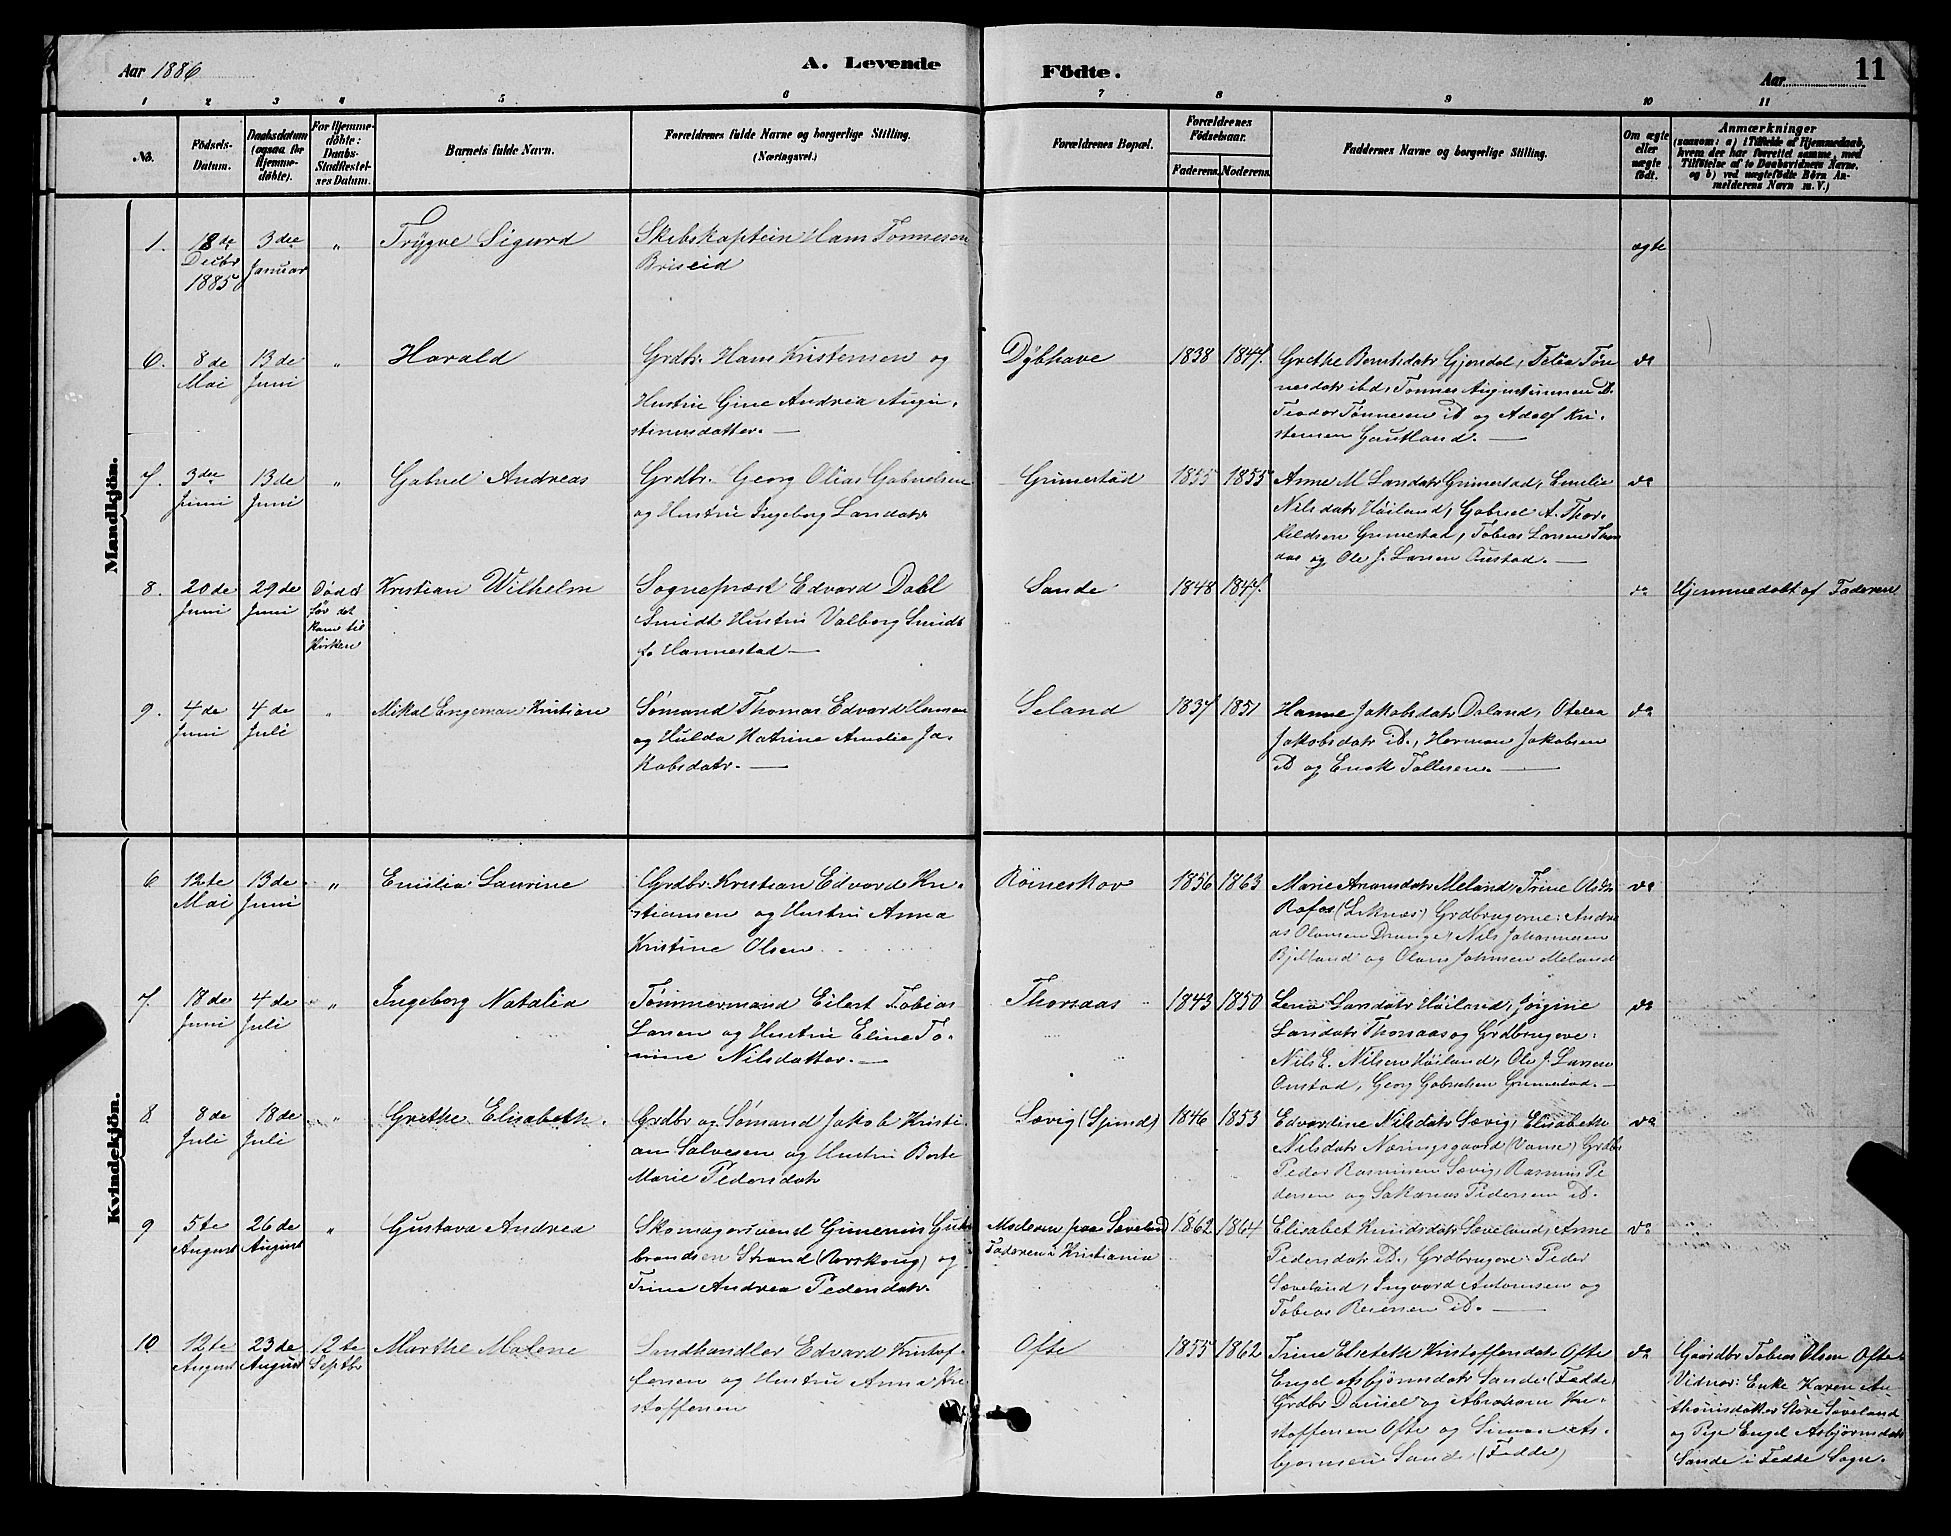 Aar 1886
A. Levende
Födte.
Aar
11
1 2 3 4 5 6 7 8 9 10 11
No.
Födsels-
Datum.
Daabsdatum
(ogsaa for
Hjemme-
döbte).
For Hjemme-
döbte:
Daabs-
Stadfæstel-
ses Datum.
Barnets fulde Navn.
Forældrenes fulde Navne og borgerlige Stilling.
(Næringsvei.)
Forældrenes Bopæl.
Forældrenes
Födselsaar.
Faderens. Moderens.
Faddernes Navne og borgerlige Stilling.
Om ægte
eller
uægte
født.
Anmærkninger
(saasom: a) i Tilfælde af Hjemmedaab,
hvem der har forrettet samme, med
Tilföielse af to Daabsvidners Navne,
og b) ved uægtefödte Börn An-
melderens Navn m. V.)
Mandkjön.
1. 18de Decbr 1885 3die Januar " Trygve Sigurd
Skibskaptein Hans Tønnesen
Briseid
ægte
6. 8de Mai 13de Juni " Harald
Grdbr. Hans Kristensen og
Hustru Gine Andrea Augu-
stinusdatter. —
Dybhave 1838 1847.
Grethe Berntsdatr Gjendal, Talea Tøn-
nesdatr ibd, Tønnes Augustinusen iD.
Teodor Tønnesen iD og Adolf Kri-
stensen Gautland. —
do
7. 3die Juni 13de Juni " Gabriel Andreas
Grdbr. Georg Olias Gabrielsen
og Hustru Ingeborg Larsdatr
Grimestad 1855 1855
Anne M Larsdatr Grimestad, Emelie
Nilsdatr Høiland, Gabriel A. Thor-
kildsen Grimestad, Tobias Larsen Thors
aas og Ole J. Larsen Austad. —
do
8. 20de Juni 29de Juni Død før det kom til Kirken Kristian Wilhelm
Sognepræst Edvard Dahl
Smidt Hustru Valborg Smidt
f. Hannestad —
Sande 1848 1847.
do
Hjemmedøbt af Faderen
9. 4de Juni 4de Juli " Mikal Engemar Kristian
Sømand Thomas Edvard Hansen
og Hulda Katrine Amalie Ja-
kobsdatr. —
Seland 1837 1851
Hanne Jakobsdatr Daland, Otelea
Jakobsdatr iD., Herman Jakobsen
iD og Enok Tallesen. —
do
Kvindekjön.
6 12te Mai 13de Juni " Emilie Laurine
Grdbr. Kristian Edvard Kri-
stiansen og Hustru Anna
Kristine Olsen
Röineskov 1856 1863
Marie Aronsdatr Meland, Trine Olsdr
Rafos (Liknes) Grdbrugerne: Andre
as Olausen Drange, Nils Johannesen
Bjelland og Olaus Johnsen Meland
do
7. 18de Juni 4de Juli " Ingeborg Natalia
Tømmermand Eilert Tobias
Larsen og Hustru Eline To-
mine Nilsdatter. —
Thorsaas 1843 1850
Lena Larsdatr Høiland, Jørgine
Larsdatr Thorsaas og Grdbrugere:
Nils E. Nilsen Høiland, Ole J. Larsen
Austad, Georg Gabrielsen Grimestad. —
do
8. 8de Juli 18de Juli " Grethe Elisabeth.
Grdbr og Sømand Jakob Kristi-
an Salvesen og Hustru Berte
Marie Pedersdatr
Sævig (Spind) 1846 1853
Edvardine Nilsdatr Sævig, Elisabeth
Nilsdatr Næringsgaard (Vanse) Grdbr
Peder Rasmusen Sævig, Rasmus Pe
dersen og Sakarias Pedersen iD.
do
9 5te August 26de August " Gustava Andrea
Skomagersvend Gunerius Gul
brandsen Strand (Rørskoug) og
Trine Andrea Pedersdatr.
Moderen paa Sæveland
Faderen i Kristiania
1862 1864
Elisabet Knudsdatr Sæveland, Anne
Pedersdatr iD., Grdbrugere: Peder
Sæveland, Ingvard Antonisen og
Tobias Reiersen iD. —
do
10 12te August 23de August 12te Septbr Marthe Malene
Landhandler Edvard Kristof-
fersen og Hustru Anna Kri-
stoffersen
Ofte 1855 1862
Trine Elsebeth Kristoffersdatr Ofte
Engel Asbjørnsdatr Sande (Fedde)
Grdbr Daniel og Abraham Kri-
stoffersen Ofte og Simon As-
bjørnsen Sande (Fedde)
do
Gaardbr Tobias Olsen Ofte
Vidner: Enke Karen An-
thonisdatter Store Sæveland
og Pige Engel Asbjørnsdatr
Sande i Fedde Sogn.